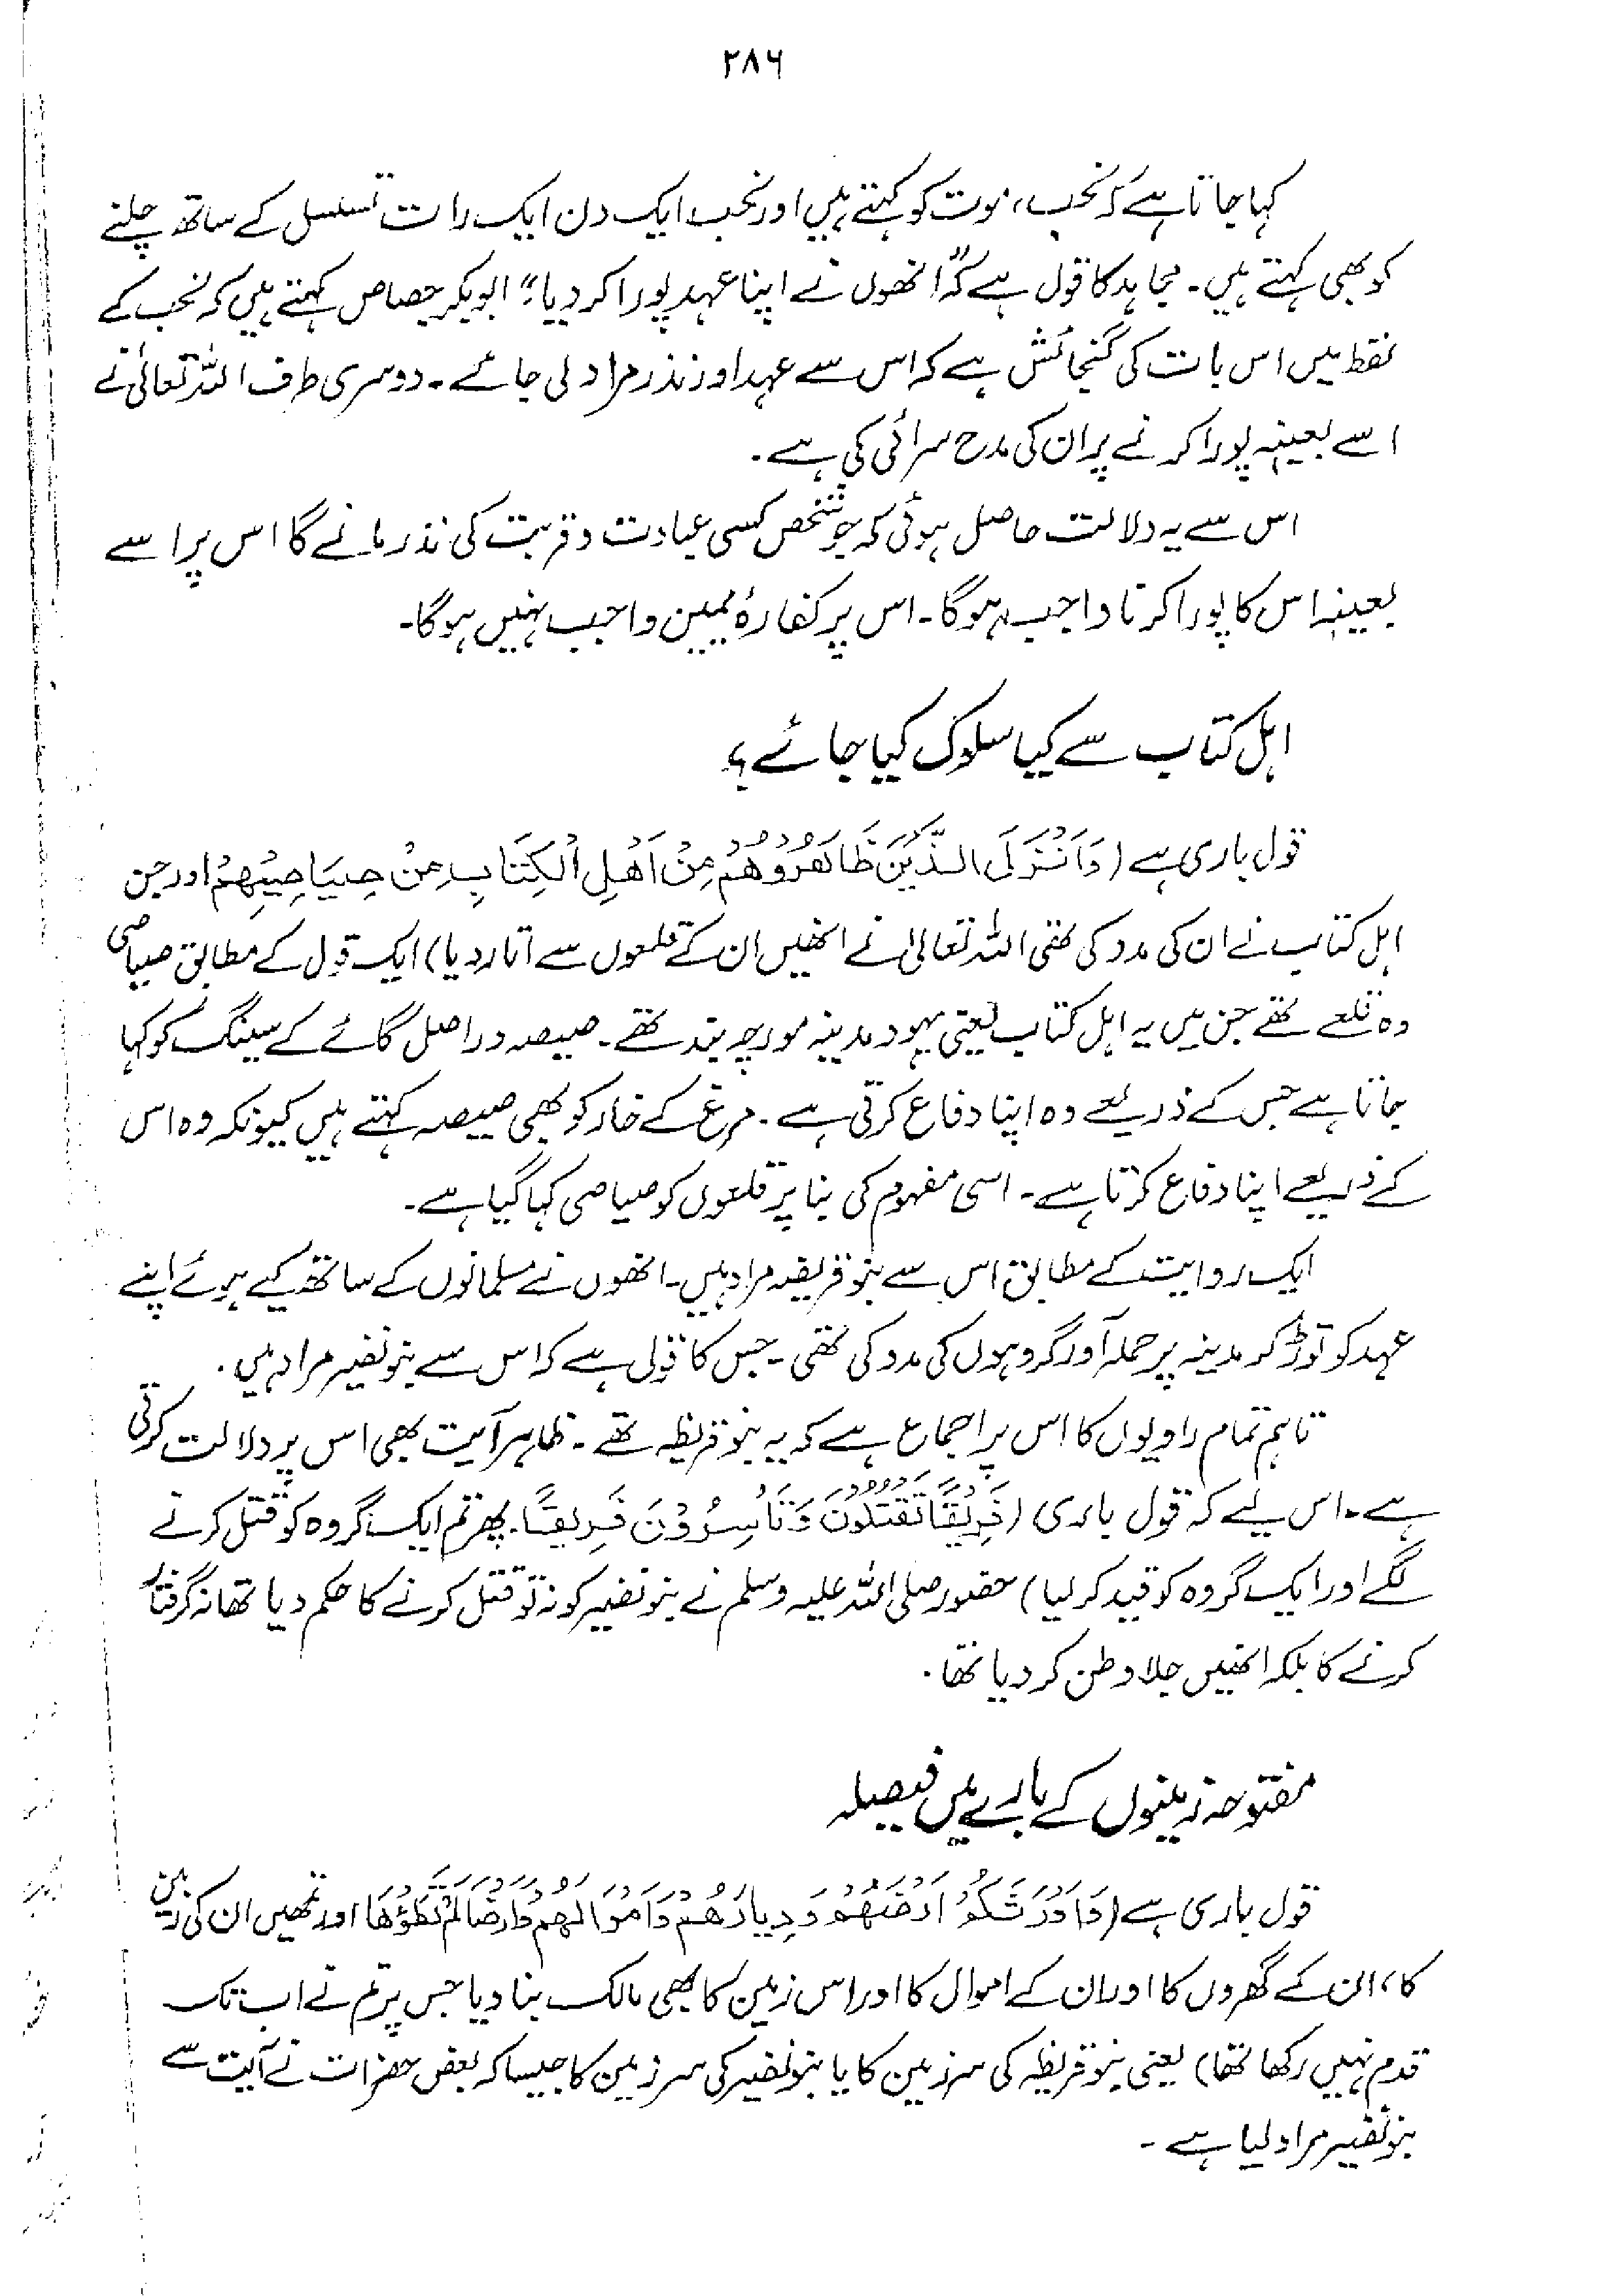 ۲۸۶
کہا جاتا ہے کہ نحب، موت کو کہتے ہیں اور نحب ایک دن ایک رات تسلسل کے ساتھ چلنے
کو بھی کہتے ہیں۔ مجاہد کا قول ہے کہ "انھوں نے اپنا عہد پورا کر دیا؛" ابوبکر جصاص کہتے ہیں کہ نحب کے
لفظ میں اس بات کی گنجائش ہے کہ اس سے عہد اور نذر مراد لی جائے۔ دوسری طرف اللہ تعالیٰ نے
اسے بعینہٖ پورا کرنے پر ان کی مدح سرائی کی ہے۔
اس سے یہ دلالت حاصل ہوئی کہ جو شخص کسی عبادت و قربت کی نذر مانے گا اس پر اسے
بعینہٖ اس کا پورا کرنا واجب ہوگا۔ اس پر کفارۂ یمین واجب نہیں ہوگا۔
اہل کتاب سے کیا سلوک کیا جائے؟
قول باری ہے (وَاَنْزَلَ الَّذِيْنَ ظَاهَرُوْهُمْ مِنْ اَهْلِ الْكِتَابِ مِنْ صِيَاصِيْهِمْ اور جن
اہل کتاب نے ان کی مدد کی تھی اللہ تعالیٰ نے انھیں ان کے قلعوں سے اتار دیا) ایک قول کے مطابق صیاصی
وہ قلعے تھے جن میں یہ اہل کتاب یعنی یہود مدینہ مورچہ بند تھے۔ صیصہ دراصل گائے کے سینگ کو کہا
جاتا ہے جس کے ذریعے وہ اپنا دفاع کرتی ہے۔ مرغ کے خار کو بھی صیصہ کہتے ہیں کیونکہ وہ اس
کے ذریعے اپنا دفاع کرتا ہے۔ اسی مفہوم کی بنا پر قلعوں کو صیاصی کہا گیا ہے۔
ایک روایت کے مطابق اس سے بنو قریظہ مراد ہیں۔ انھوں نے مسلمانوں کے ساتھ کیے ہوئے اپنے
عہد کو توڑ کر مدینہ پر حملہ آور گروہوں کی مدد کی تھی۔ جس کا قول ہے کہ اس سے بنو نضیر مراد ہیں۔
تاہم تمام راویوں کا اس پر اجماع ہے کہ یہ بنو قریظہ تھے۔ ظاہر آیت بھی اس پر دلالت کرتی
ہے۔ اس لیے کہ قول باری (فَرِيْقًا تَقْتُلُوْنَ وَتَأْسِرُوْنَ فَرِيْقًا۔ پھر تم ایک گروہ کو قتل کرنے
لگے اور ایک گروہ کو قید کر لیا) حضور صلی اللہ علیہ وسلم نے بنو نضیر کو نہ تو قتل کرنے کا حکم دیا تھا نہ گرفتار
کرنے کا بلکہ انھیں جلا وطن کر دیا تھا۔
مفتوحہ زمینوں کے بارے میں فیصلہ
قول باری ہے (وَاَوْرَثَكُمْ اَرْضَهُمْ وَدِيَارَهُمْ وَاَمْوَالَهُمْ وَاَرْضًا لَمْ تَطَؤُهَا اور تمھیں ان کی زمین
کا، ان کے گھروں کا اور ان کے اموال کا اور اس زمین کا بھی مالک بنا دیا جس پر تم نے اب تک
قدم نہیں رکھا تھا) یعنی بنو قریظہ کی سرزمین کا یا بنو نضیر کی سرزمین کا جیسا کہ بعض حضرات نے آیت سے
بنو نضیر مراد لیا ہے۔